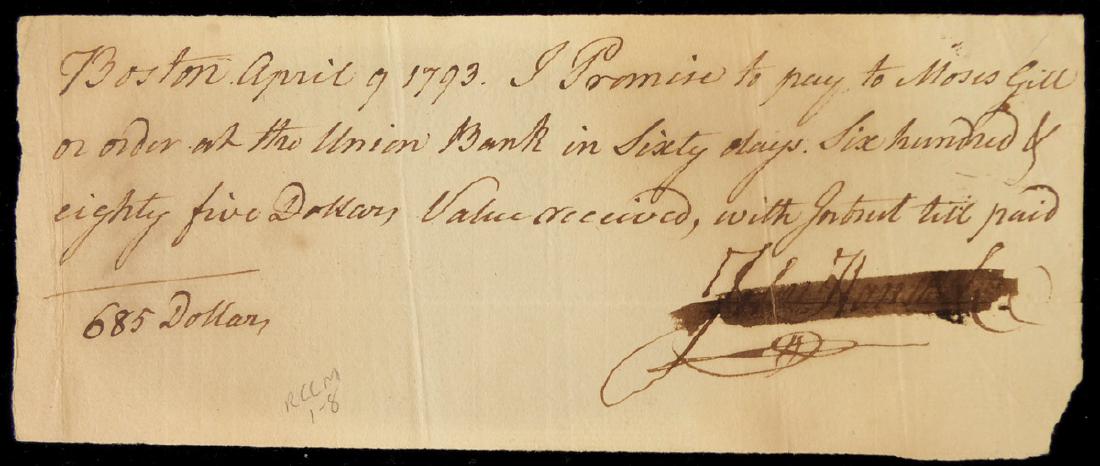 Boston April 9 1793. I Promise to pay to Moses Gill
or order at the Union Bank in Sixty days. Six hundred &
eighty five Dollars Value received, with Intrest till paid
685 Dollars
John Hancock
RCCM
1-8